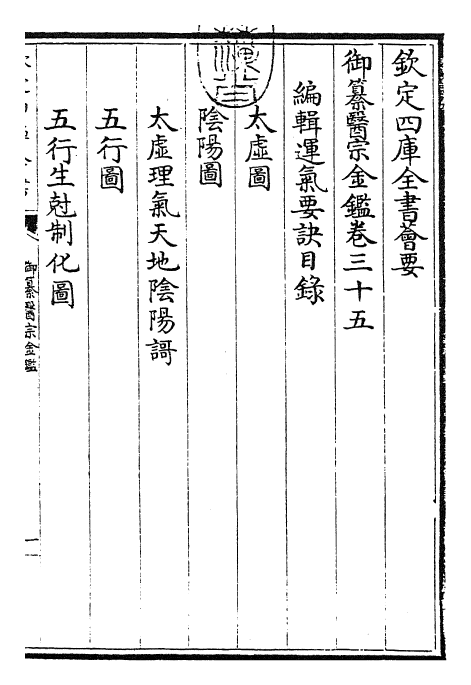 欽定四庫全書薈要
御纂醫宗金鑑卷三十五
編輯運氣要訣目錄
太虛圖
陰陽圖
太虛理氣天地陰陽謌
五行圖
五行生尅制化圖
御纂醫宗金鑑
一